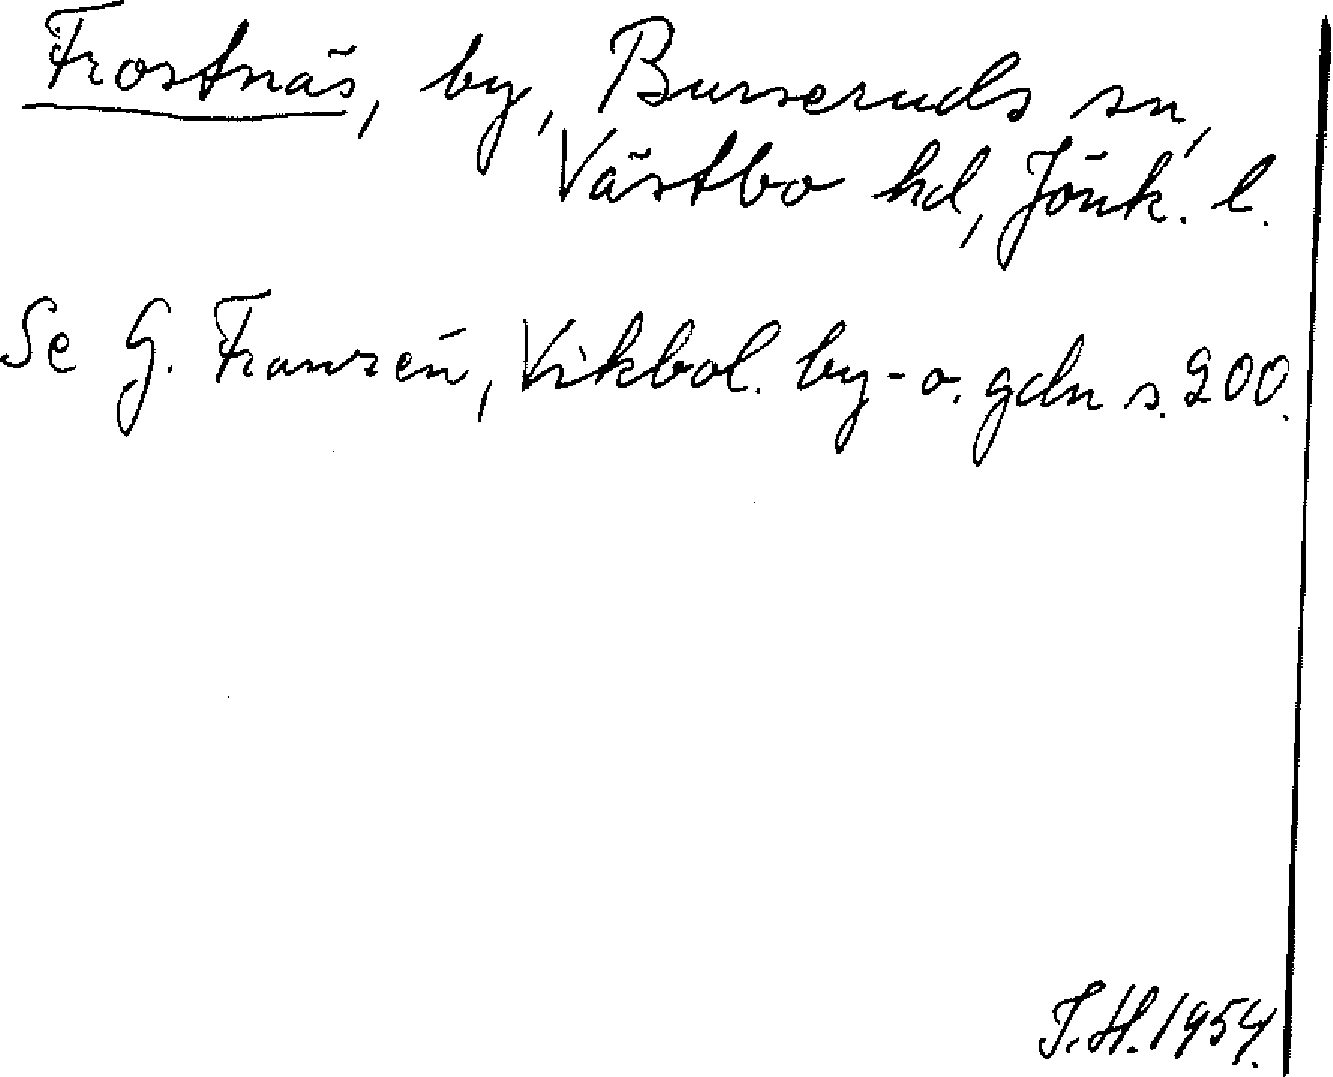 Frostnäs, by, Burseruds sn,
Västbo hd, Jönk. l.
Se G. Franzén, Vikbol. by- o. gdn s. 200.
T.H. 1954.